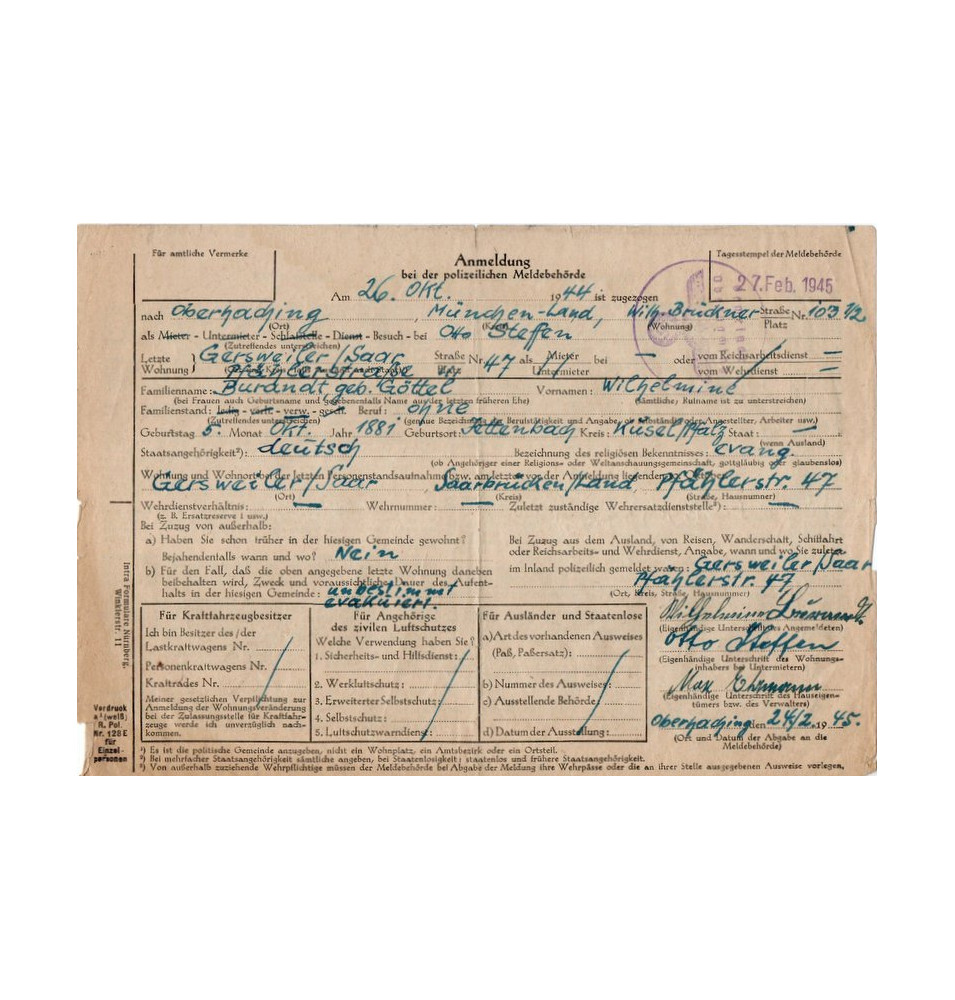 Für amtliche Vermerke
Anmeldung
bei der polizeilichen Meldebehörde
Tagesstempel der Meldebehörde
27. Feb. 1945
Am 26. Okt. 1944 ist zugezogen
nach Oberhaching, München-Land, Wilh. Brückner Straße Nr. 103 1/2
(Ort) (Kreis) (Wohnung) Platz
als Mieter - Untermieter - Schlafstelle - Dienst - Besuch - bei Otto Steffen
(Zutreffendes unterstreichen)
Letzte Wohnung Gersweiler/Saar Straße Nr. 47 als Mieter bei — oder vom Reichsarbeitsdienst —
Pfählerstraße Platz Untermieter vom Wehrdienst —
Familienname: Burandt geb. Göttel Vornamen: Wilhelmine
(bei Frauen auch Geburtsname und gegebenenfalls Name aus der letzten früheren Ehe) (Sämtliche; Rufname ist zu unterstreichen)
Familienstand: ledig - verh. - verw. - gesch. Beruf: ohne
(Zutreffendes unterstreichen) (genaue Bezeichnung der Berufstätigkeit und Angabe, ob selbständig oder Angestellter, Arbeiter usw.)
Geburtstag 5. Monat Okt. Jahr 1881 Geburtsort: Jettenbach Kreis: Kusel/Pfalz Staat: —
(wenn Ausland)
Staatsangehörigkeit²): deutsch Bezeichnung des religiösen Bekenntnisses: evang.
(ob Angehöriger einer Religions- oder Weltanschauungsgemeinschaft, gottgläubig oder glaubenslos)
Wohnung und Wohnort bei der letzten Personenstandsaufnahme bzw. am letzten vor der Anmeldung liegenden 10. Oktober:
Gersweiler/Saar, Saarbrücken/Land, Pfählerstr. 47
(Ort) (Kreis) (Straße, Hausnummer)
Wehrdienstverhältnis: — Wehrnummer: — Zuletzt zuständige Wehrersatzdienststelle³): —
(z. B. Ersatzreserve 1 usw.)
Bei Zuzug von außerhalb:
a) Haben Sie schon früher in der hiesigen Gemeinde gewohnt?
Bejahendenfalls wann und wo? Nein
b) Für den Fall, daß die oben angegebene letzte Wohnung daneben
beibehalten wird, Zweck und voraussichtliche Dauer des Aufent-
halts in der hiesigen Gemeinde: unbestimmt
evakuiert.
Bei Zuzug aus dem Ausland, von Reisen, Wanderschaft, Schiffahrt
oder Reichsarbeits- und Wehrdienst, Angabe, wann und wo Sie zuletzt
im Inland polizeilich gemeldet waren: Gersweiler/Saar
Pfählerstr. 47
(Ort, Kreis, Straße, Hausnummer)
Für Kraftfahrzeugbesitzer
Ich bin Besitzer des/der
Lastkraftwagens Nr.
Personenkraftwagens Nr.
Kraftrades Nr.
Meiner gesetzlichen Verpflichtung zur
Anmeldung der Wohnungsveränderung
bei der Zulassungsstelle für Kraftfahr-
zeuge werde ich unverzüglich nach-
kommen.
Für Angehörige
des zivilen Luftschutzes
Welche Verwendung haben Sie?
1. Sicherheits- und Hilfsdienst:
2. Werkluftschutz:
3. Erweiterter Selbstschutz:
4. Selbstschutz:
5. Luftschutzwarndienst:
Für Ausländer und Staatenlose
a) Art des vorhandenen Ausweises
(Paß, Paßersatz):
b) Nummer des Ausweises:
c) Ausstellende Behörde:
d) Datum der Ausstellung:
Wilhelmine Burandt
(Eigenhändige Unterschrift des Angemeldeten)
Otto Steffen
(Eigenhändige Unterschrift des Wohnungs-
inhabers bei Untermietern)
Max
(Eigenhändige Unterschrift des Hauseigen-
tümers bzw. des Verwalters)
Oberhaching, den 24/2. 1945.
(Ort und Datum der Abgabe an die
Meldebehörde)
¹) Es ist die politische Gemeinde anzugeben, nicht ein Wohnplatz, ein Amtsbezirk oder ein Ortsteil.
²) Bei mehrfacher Staatsangehörigkeit sämtliche angeben, bei Staatenlosigkeit: staatenlos und frühere Staatsangehörigkeit.
³) Von außerhalb zuziehende Wehrpflichtige müssen der Meldebehörde bei Abgabe der Meldung ihre Wehrpässe oder die an ihrer Stelle ausgegebenen Ausweise vorlegen.
Intra Formulare Nürnberg,
Winklerstr. 11
Vordruck
a¹ (weiß)
R. Pol.
Nr. 128 E
für
Einzel-
personen